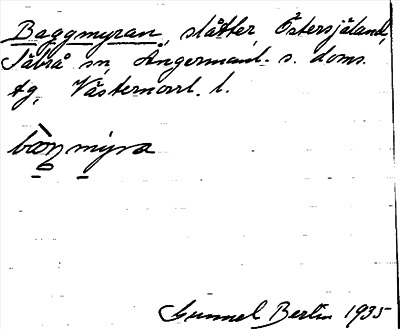 Baggmyran, slåtter, Östersjåland,
Såbrå sn, Ångermanl. s. doms.
tg, Västernorrl. l.
bàggmyra
Gunnel Berlin 1935